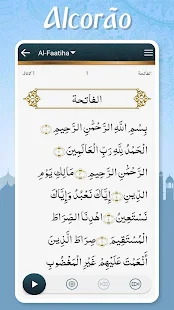 Alcorão
Al-Faatiha
الفاتحة
1
الفاتحة
بِسْمِ اللَّهِ الرَّحْمَٰنِ الرَّحِيمِ
الْحَمْدُ لِلَّهِ رَبِّ الْعَالَمِينَ
الرَّحْمَٰنِ الرَّحِيمِ مَالِكِ يَوْمِ
الدِّينِ إِيَّاكَ نَعْبُدُ وَإِيَّاكَ
نَسْتَعِينُ اهْدِنَا الصِّرَاطَ
الْمُسْتَقِيمَ صِرَاطَ الَّذِينَ
أَنْعَمْتَ عَلَيْهِمْ غَيْرِ الْمَغْضُوبِ